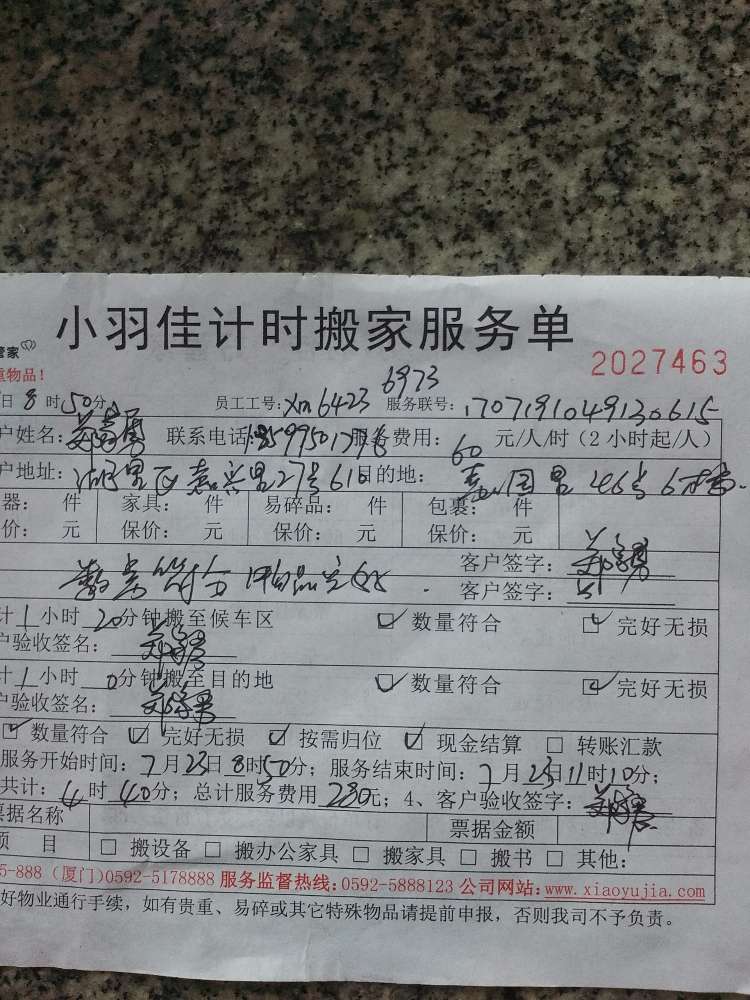 小羽佳计时搬家服务单
管家
重物品！
2027463
6973
日8时50分 员工工号：xm6423 服务联号：1707191049130615
户姓名： 联系电话 服务费用：60元/人/时（2小时起/人）
户地址：湖里区嘉兴里27号610 目的地：46号6楼
器： 件 家具： 件 易碎品： 件 包裹： 件
价： 元 保价： 元 保价： 元 保价： 元
数量符合 物品完好． 客户签字：
客户签字：
计1小时20分钟搬至候车区 ☑ 数量符合 ☑ 完好无损
户验收签名：
计1小时0分钟搬至目的地 ☑ 数量符合 ☑ 完好无损
户验收签名：
☑ 数量符合 ☑ 完好无损 ☑ 按需归位 ☑ 现金结算 □ 转账汇款
服务开始时间：7月23日8时50分；服务结束时间：7月23日11时10分；
共计：4时40分；总计服务费用280元；4、客户验收签字：
票据名称 票据金额
项 目 □ 搬设备 □ 搬办公家具 □ 搬家具 □ 搬书 □ 其他：
5-888（厦门）0592-5178888 服务监督热线：0592-5888123 公司网站：www.xiaoyujia.com
好物业通行手续，如有贵重、易碎或其它特殊物品请提前申报，否则我司不予负责。